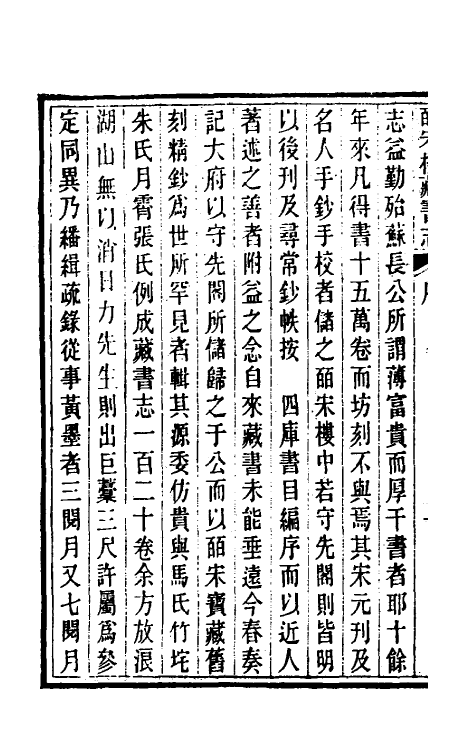 皕宋樓藏書志 序
志益勤殆蘇長公所謂薄富貴而厚于書者耶十餘
年來凡得書十五萬卷而坊刻不與焉其宋元刊及
名人手鈔手校者儲之皕宋樓中若守先閣則皆明
以後刊及尋常鈔帙按　四庫書目編序而以近人
著述之善者附益之念自來藏書未能垂遠今春奏
記大府以守先閣所儲歸之于公而以皕宋寶藏舊
刻精鈔爲世所罕見者輯其源委仿貴與馬氏竹垞
朱氏月霄張氏例成藏書志一百二十卷余方放浪
湖山無以消日力先生則出巨藳三尺許屬爲參
定同異乃繙緝疏錄從事黃墨者三閱月又七閱月